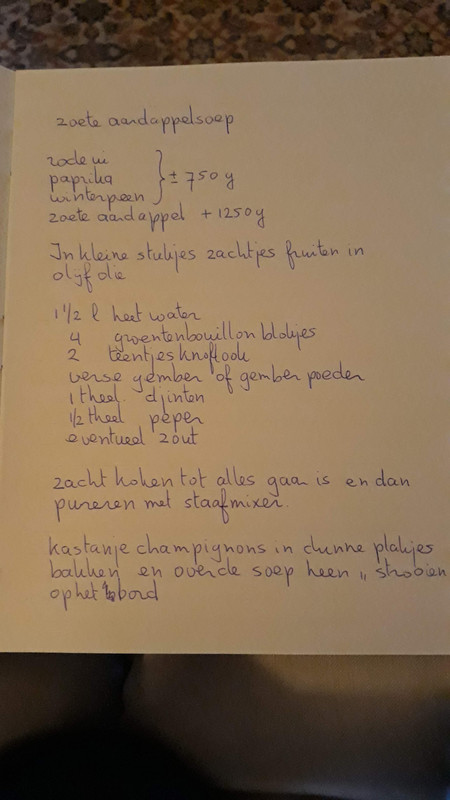 zoete aardappelsoep
rode ui
paprika } ± 750 g
winterpeen
zoete aardappel + 1250 g
In kleine stukjes zachtjes fruiten in
olijfolie
1 1/2 l heet water
4 groentenbouillon blokjes
2 teentjes knoflook
verse gember of gember poeder
1 theel. djinten
1/2 theel peper
eventueel zout
zacht koken tot alles gaar is en dan
pureren met staafmixer.
kastanje champignons in dunne plakjes
bakken en over de soep heen strooien
op het bord